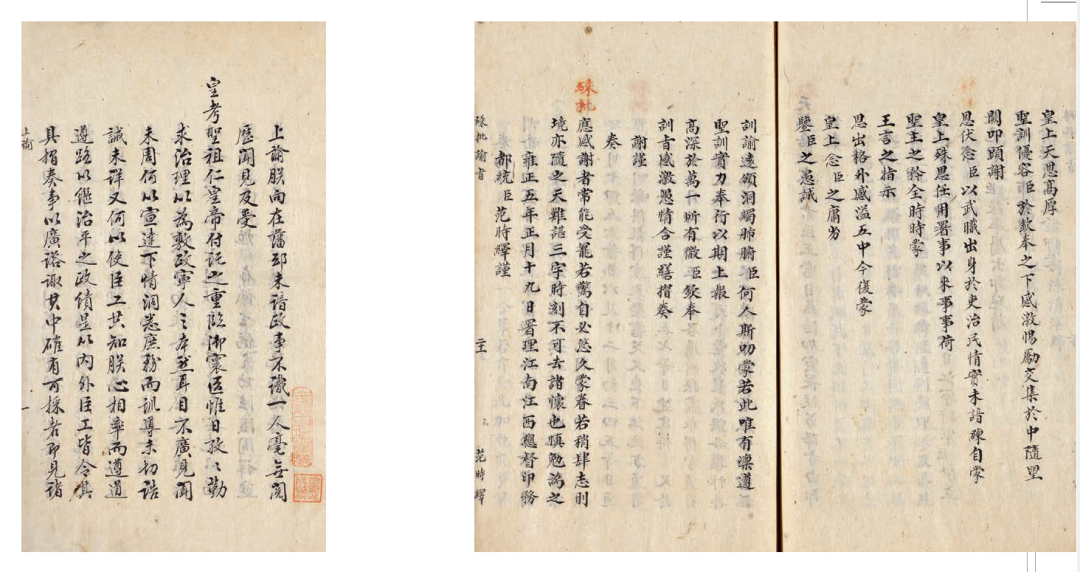 上諭朕向在藩邸未諳政事不識一人毫無閱
歷聞見及受
皇考聖祖仁皇帝付託之重臨御寰區惟日孜〻勤
求治理以為敷政寧人之本然耳目不廣見聞
未周何以宣達下情洞悉庶務而訓導未切誥
誡未詳又何以使臣工共知朕心相率而遵道
遵路以繼治平之政績是以內外臣工皆令其
具摺奏事以廣諮諏其中確有可採者即見諸
上諭 一
皇上天恩高厚
聖訓優容臣於欽奉之下感激惕勵交集於中隨望
闕叩頭謝
恩伏念臣以武職出身於吏治民情實未諳練自蒙
皇上殊恩任用署事以來事事荷
聖主之矜全時時蒙
王言之指示
恩出格外感溢五中今復蒙
皇上念臣之庸劣
天鑒臣之愚誠
訓諭遠頒洞燭肺腑臣何人斯叨蒙若此唯有凜遵
聖訓實力奉行以期上報
高深於萬一所有微臣欽奉
訓旨感激愚情合謹繕摺奏
謝謹
奏
硃批
應感謝者常能受寵若驚自必悠久蒙眷若稍肆志則
境亦隨之天難諶三字時刻不可去諸懷也慎勉為之
雍正五年正月十九日署理江南江西總督印務
都統臣范時繹謹
硃批諭旨 范時繹